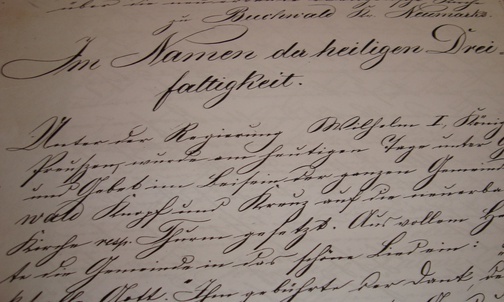 über die
zu Buchwald Kr. Neumarkt.
Im Namen der heiligen Drei-
faltigkeit.
Unter der Regierung Wilhelm I, König
Preußen, wurde am heutigen Tage unter
und Gebet im Beisein der ganzen Gemein
wald Knopf und Kreuz auf die neuerba
Kirche resp. Thurm gesetzt. Aus vollem H
te die Gemeinde in das schöne Lied ein:
Gott. Ihm gebührte der Dank, de